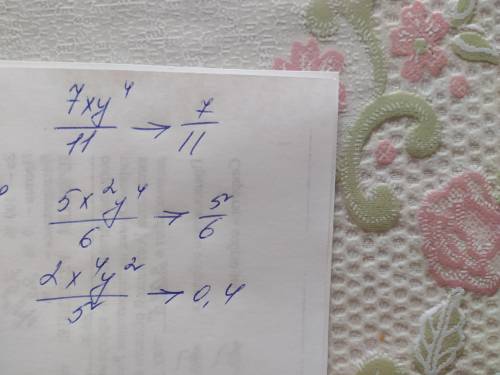 7xy⁴/11 → 7/11
5x²y⁴/6 → 5/6
2x⁴y²/5 → 0,4